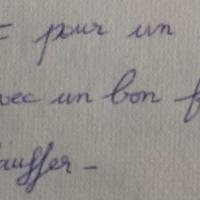 = pour un
avec un bon f
auffer-